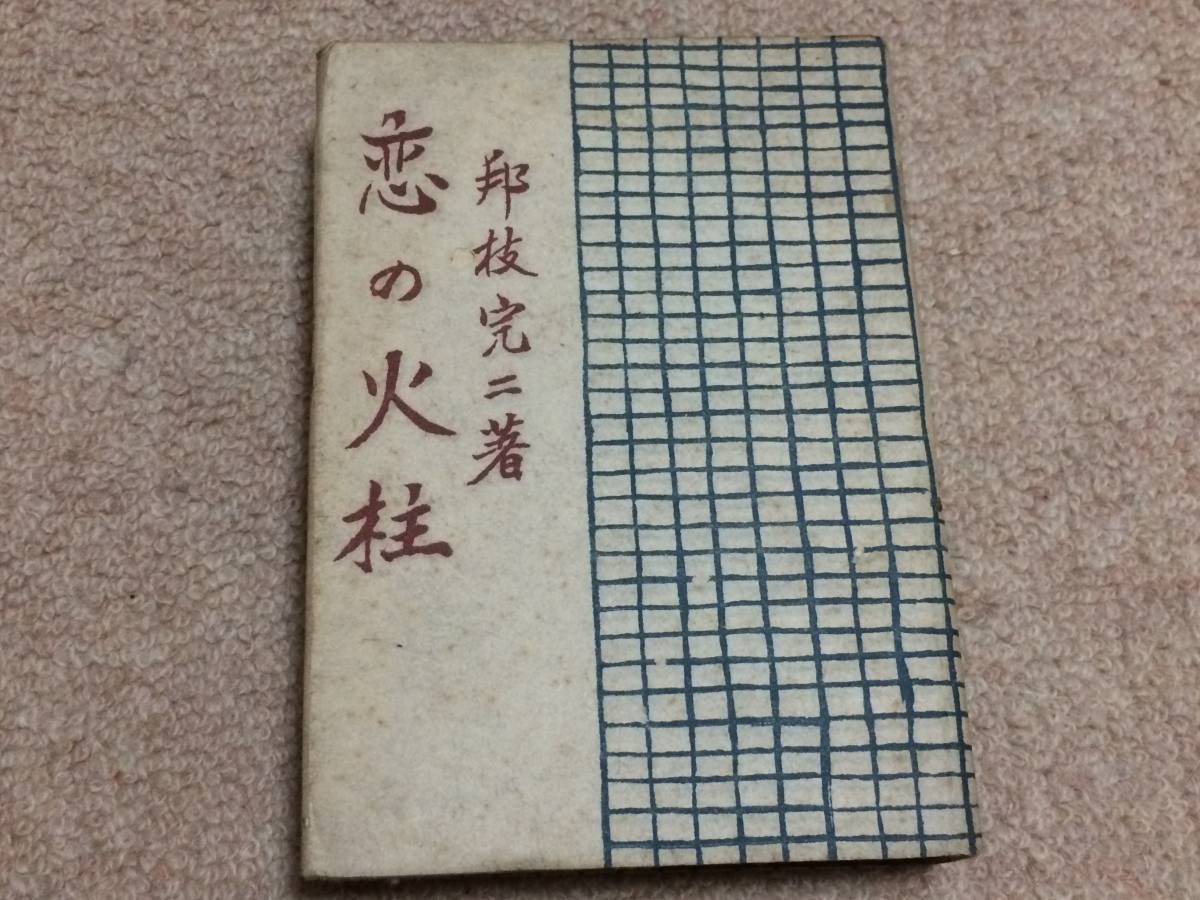 邦枝完二著
恋の火柱